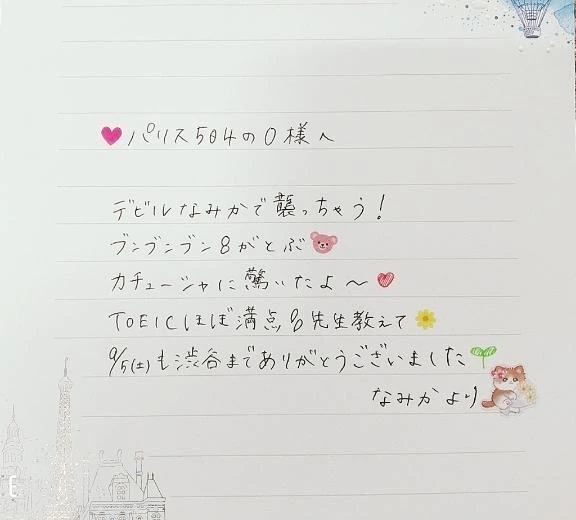 パリス504の0様へ
デビルなみかで襲っちゃう!
ブンブンブン8がとぶ
カチューシャに驚いたよ〜
TOEICほぼ満点8先生教えて
9/5(土)も渋谷までありがとうございました
なみかより